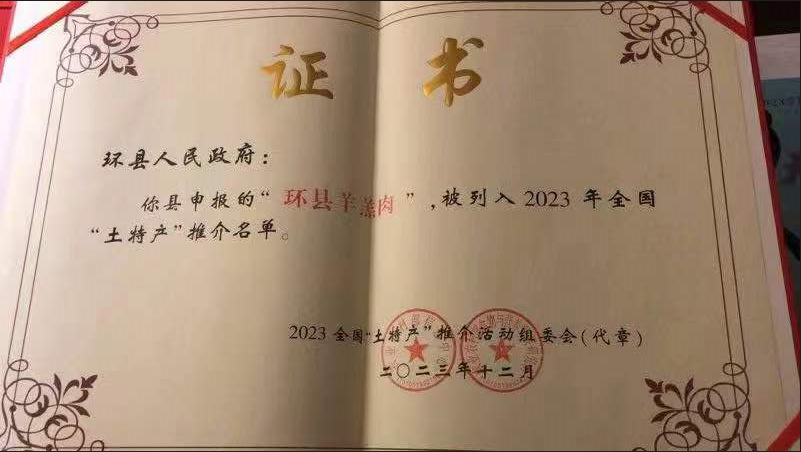 证 书
环县人民政府:
你县申报的“环县羊羔肉”,被列入2023年全国
“土特产”推介名单。
2023全国“土特产”推介活动组委会(代章)
二〇二三年十二月